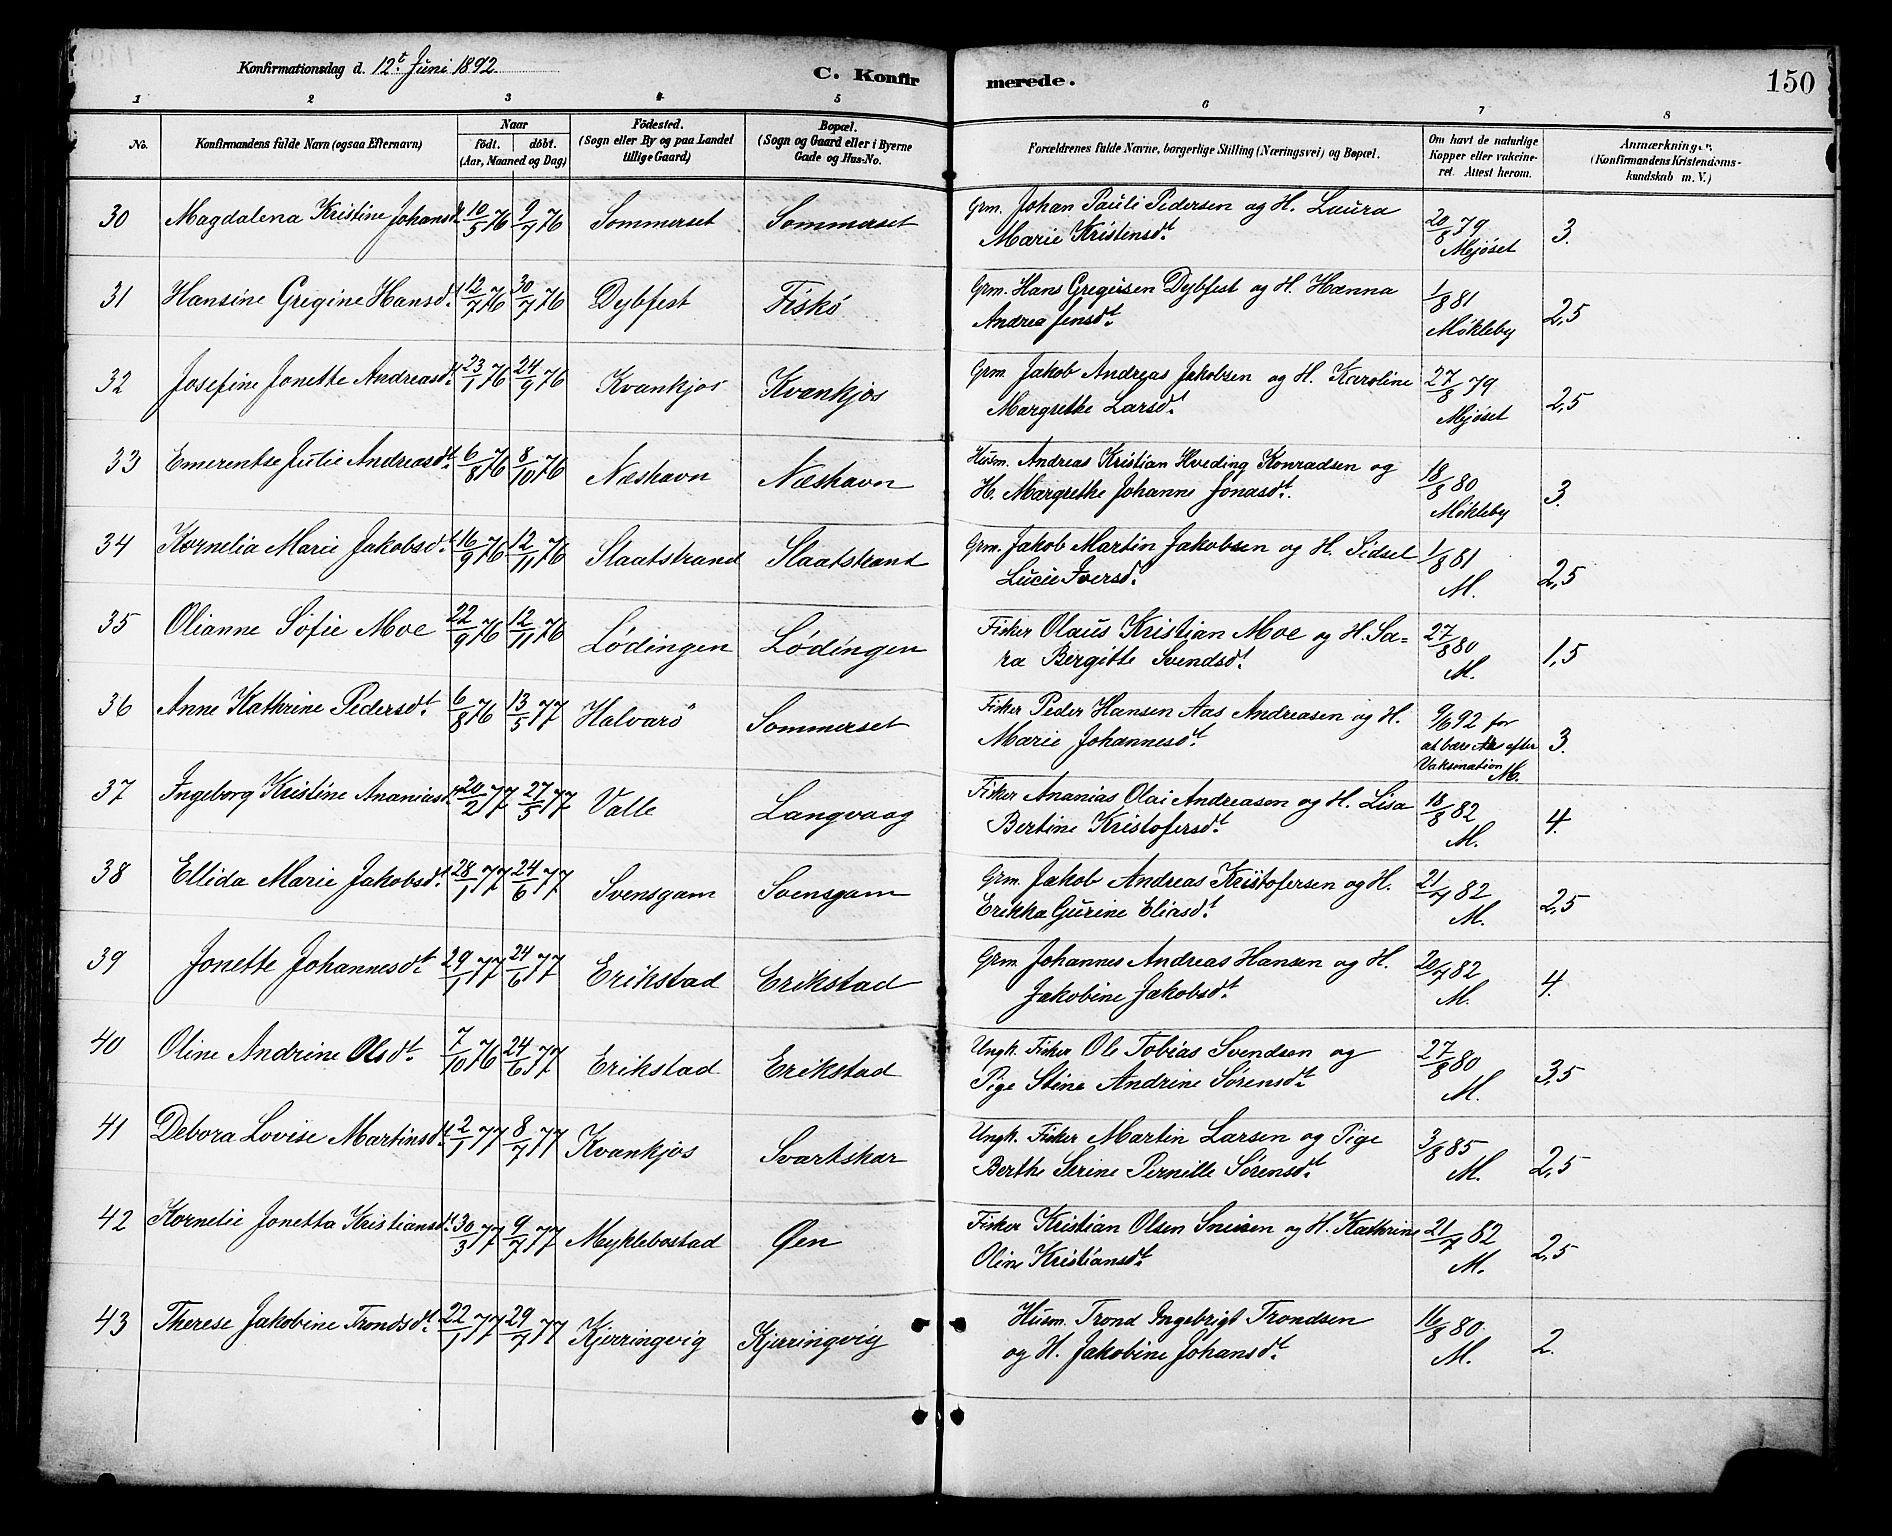 Konfirmationsdag d. 12t Juni 1892.
C. Konfirmerede.
150
1 2 3 4 5 6 7 8
No. Konfirmandens fulde Navn (ogsaa Efternavn) Naar födt. döbt. (Aar, Maaned og Dag) Födested. (Sogn eller By og paa Landet tillige Gaard) Bopæl. (Sogn og Gaard eller i Byerne Gade og Hus-No. Forældrenes fulde Navne, borgerlige Stilling (Næringsvei) og Bopæl. Om havt de naturlige Kopper eller vakcineret. Attest herom. Anmærkninger. (Konfirmandens Kristendomskundskab m. V.)
30 Magdalena Kristine Johansdt. 10/5 76 9/7 76 Sommerset Sommerset Grm. Johan Pauli Pedersen og H. Laura 20/8 79 3.
Marie Kristensdt. Mejöset
31 Hansine Gregine Hansdt. 12/7 76 30/7 76 Dybfest Fiskö Grm. Hans Gregersen Dybfest og H. Hanna 1/8 81 2,5
Andrea Jensdt. Møkleby
32 Josefine Jonette Andreasdt. 23/1 76 24/9 76 Kvankjos Kvankjos Grm. Jakob Andreas Jakobsen og H. Karoline 27/8 79 2,5
Margrethe Larsdt. Mejöset
33 Emerentse Julie Andreasdt. 6/8 76 8/10 76 Næshavn Næshavn Husm. Andreas Kristian Hveding Konradsen og 18/8 80 3.
H. Margrethe Johanne Jonasdt. Møkleby
34 Kornelia Marie Jakobsdt. 16/9 76 12/11 76 Slaatstrand Slaatstrand Grm. Jakob Martin Jakobsen og H. Sidsel 1/8 81 2,5
Lucie Iversdt. M.
35 Olianne Sofie Moe 22/9 76 12/11 76 Lødingen Lødingen Fisker Olaus Kristian Moe og H. Sa= 27/8 80 1,5
ra Bergitte Svendsdt. M.
36 Anne Kathrine Pedersdt. 6/8 76 13/5 77 Halvarö Sommerset Fisker Peder Hansen Aas Andreasen og H. 9/6 92 for 3.
Marie Johannesdt. at bære Ar efter
Vaksination M.
37 Ingeborg Kristine Ananiasdt. 20/2 77 27/5 77 Valle Langvaag Fisker Ananias Olai Andreasen og H. Lisa 18/8 82 4.
Bertine Kristofersdt. M.
38 Ellida Marie Jakobsdt. 28/1 77 24/6 77 Svensgam Svensgam Grm. Jakob Andreas Kristofersen og H. 21/7 82 2,5
Erikka Gurine Eliasdt. M.
39 Jonette Johannesdt. 29/1 77 24/6 77 Erikstad Erikstad Grm. Johannes Andreas Hansen og H. 20/7 82 4.
Jakobine Jakobsdt. M.
40 Oline Andrine Olsdt. 7/10 76 24/6 77 Erikstad Erikstad Ungk. Fisker Ole Tobias Svendsen og 27/8 80 3,5
Pige Stine Andrine Sörensdt. M.
41 Debora Lovise Martinsdt. 2/1 77 8/7 77 Kvankjos Svartskar Ungk. Fisker Martin Larsen og Pige 3/8 85 2,5
Berthe Serine Pernille Sörensdt. M.
42 Kornelie Jonetta Kristiansdt. 30/3 77 9/7 77 Myklebostad Øen Fisker Kristian Olsen Sneisen og H. Kathrine 21/7 82 2,5
Oline Kristiansdt. M.
43 Therese Jakobine Trondsdt. 22/1 77 29/7 77 Kjerringvig Kjerringvig Husm. Trond Ingebrigt Trondsen 16/8 80. 2.
og H. Jakobine Johansdt. M.